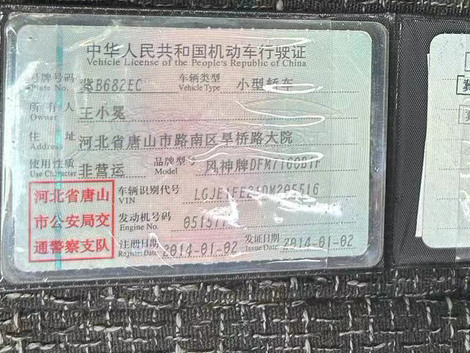 中华人民共和国机动车行驶证
Vehicle License of the People's Republic of China
号牌号码 冀B682EC 车辆类型 小型轿车
Plate No. Vehicle Type
所有人 王小冕
Owner
住址 河北省唐山市路南区旱桥路大院
Address
使用性质 非营运 品牌型号 风神牌DFM7160B1F
Use Character Model
河北省唐山
市公安局交
通警察支队
车辆识别代号
VIN
发动机号码
Engine No.
注册日期 2014-01-02 发证日期 2014-01-02
Register Date Issue Date